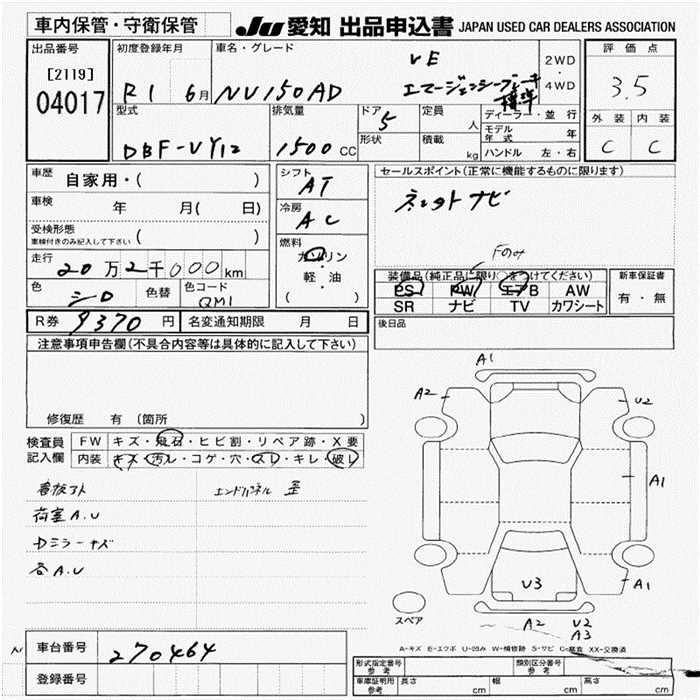 車内保管・守衛保管
JU 愛知 出品申込書 JAPAN USED CAR DEALERS ASSOCIATION
出品番号
[2119]
04017
初度登録年月
R1 6月
車名・グレード
VE
NV150AD エマージェンシーブレーキ
標準
2WD
・
4WD
評価点
3.5
外装 内装
C C
型式
DBF-VY12
排気量
1500 CC
ドア 5
形状
定員 人
積載 kg
ディーラー・並行
モデル年式 年
ハンドル 左・右
車歴 自家用・( )
車検 年 月( 日)
受検形態
車検付きのみ記入して下さい ( )
走行 20万2千000km
色 シロ 色替 色コード QM1
シフト AT
冷房 AC
燃料
ガソリン
・
軽・油
( )
セールスポイント(正常に機能するものに限ります)
ナビ
Fのみ
装備品(純正品に限り○をつけてください)
PS PW エアB AW
SR ナビ TV カワシート
新車保証書
有・無
R券 9370円 名変通知期限 月 日
後日品
注意事項申告欄(不具合内容等は具体的に記入して下さい)
修復歴 有 (箇所 )
検査員
記入欄
FW キズ・飛石・ヒビ割・リペア跡・X要
内装 キズ・汚レ・コゲ・穴・スレ・キレ・破レ
看板アト エンドパネル 歪
荷室A.U
Dミラーキズ
各A.U
A1
A2 U2
A1
A1
U3
スペア
A2 U2
A3
A-キズ E-エクボ U-凹み W-補修跡 S-サビ C-腐食 XX-交換済
車台番号 270464
登録番号
型式指定番号
参考
類別区分番号
参考
車庫証明用
参考
長さ cm 幅 cm 高さ cm